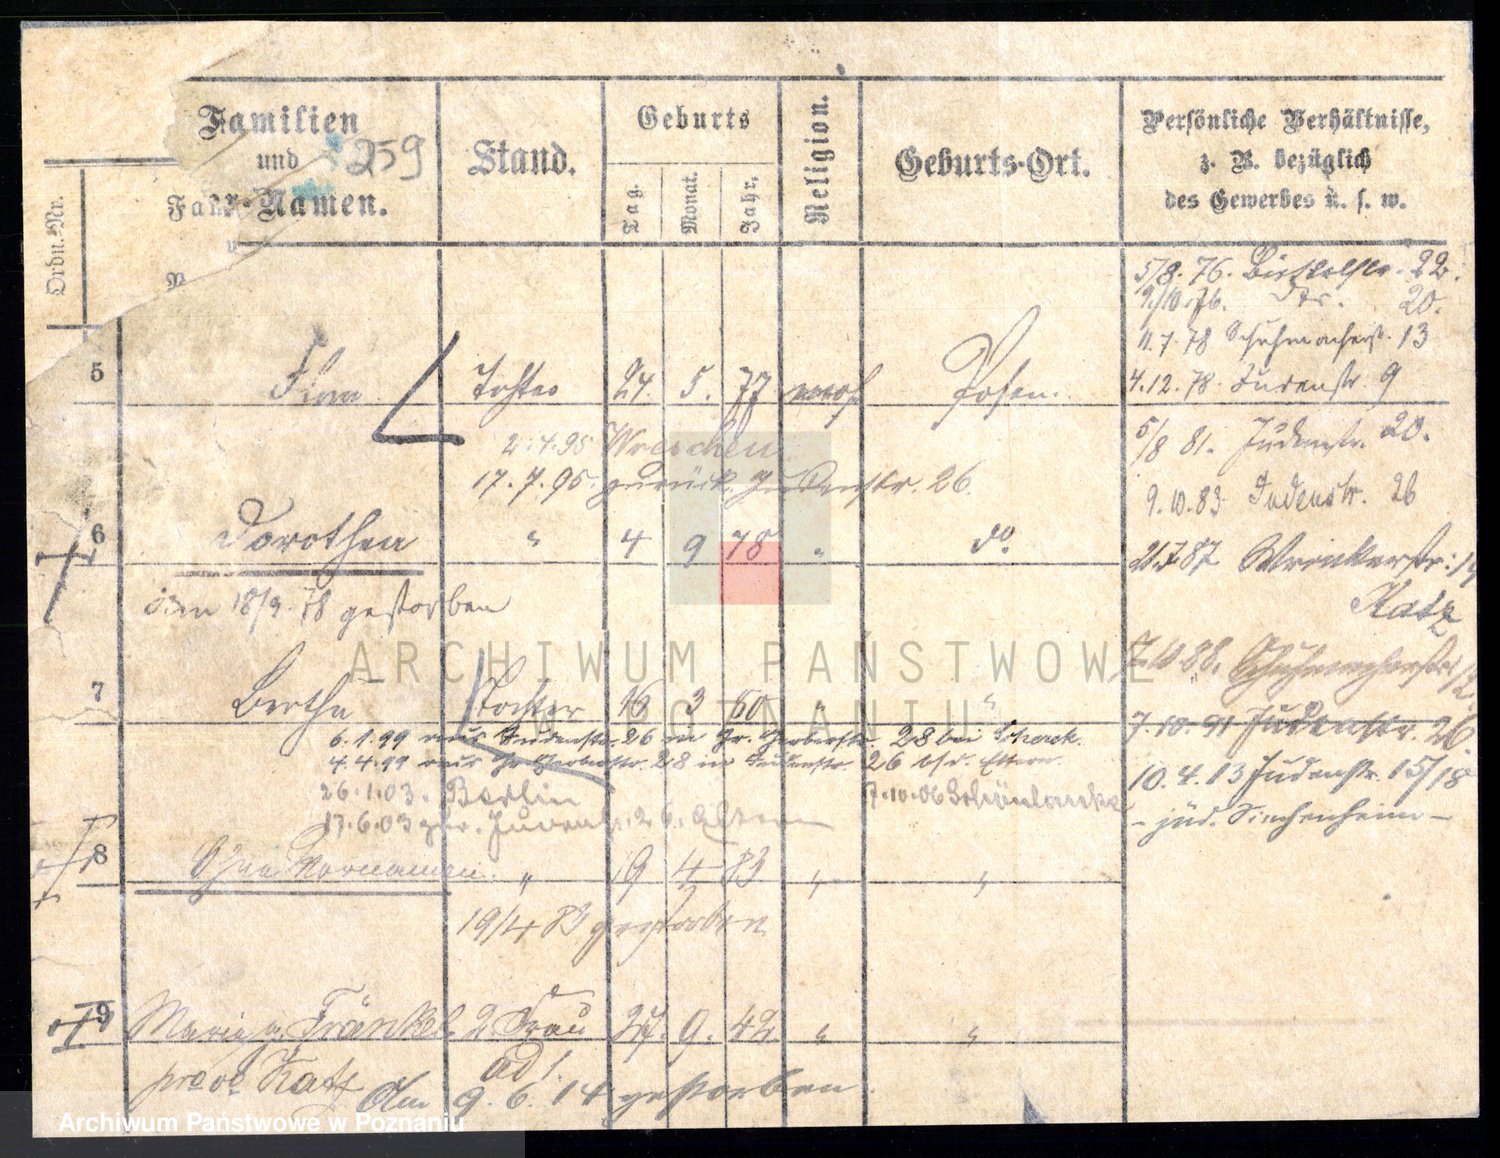 Familien
und
259
Namen.
Stand.
Geburts
Tag.
Monat.
Jahr.
Religion.
Geburts-Ort.
Persönliche Verhältnisse,
z. B. bezüglich
des Gewerbes u. s. w.
Ordn.-Nr.
5/8. 76. 22.
9/10. 76. 20.
11.7.78 Schuhmacherst. 13
5 Flora Tochter 24. 5. 77 mos Posen.
4.12.78. Judenstr. 9
2.4.95 Wreschen
5/8 81. Judenstr. 20.
17.7.95. zurück Judenstr. 26
9.10.83 Judenstr. 26
6 Dorothea " 4 9 78 " do
Wronkerstr:
am 18/9. 78 gestorben
Katz
ARCHIWUM PAŃSTWOWE
W POZNANIU
7.10.88. Schuhmacherstr. 12.
7 Bertha Tochter 16 3 80 " "
7.10.91 Judenstr. 26.
6.1.99 aus Judenstr. 26 in Gr. Gerberstr. 28 bei
4.4.99 aus Gr. Gerberstr. 28 in Judenstr. 26 Eltern
10.4.13 Judenstr. 15/18
26.1.03. Berlin
7.10.06 Schönlanke
17.6.03 zur. Judenstr. 26. Eltern
– jüd. Siechenheim –
8 Ohne Vornamen. " 19 4 83 " "
19/4 83 gestorben
9 Fränkel 2 Frau 27. 9. 42 " "
ad 1.
Katz
am 9.6.14 gestorben.
Archiwum Państwowe w Poznaniu